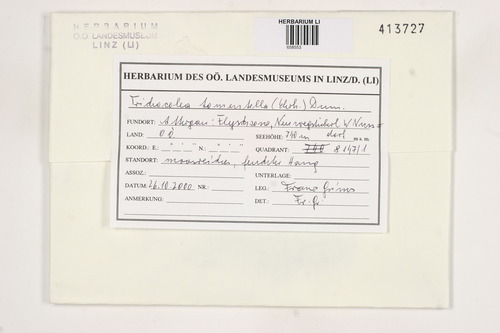 HERBARIUM
O.Ö. LANDESMUSEUM
LINZ (LI)
HERBARIUM LI
413727
HERBARIUM DES OÖ. LANDESMUSEUMS IN LINZ/D. (LI)
Trichocolea tomentella (Ehrh.) Dum.
FUNDORT: Attergau: Flyschzone,
LAND: OÖ SEEHÖHE: 740 m dorf m s. m.
KOORD.: E: ° ' " N: ° ' " QUADRANT: 8147/1
STANDORT: moosreicher, feuchter Hang
ASSOZ.: UNTERLAGE:
DATUM: 26.10.2000 NR.: LEG.: Franz Grims
ANMERKUNG: DET.: Fr. Gr